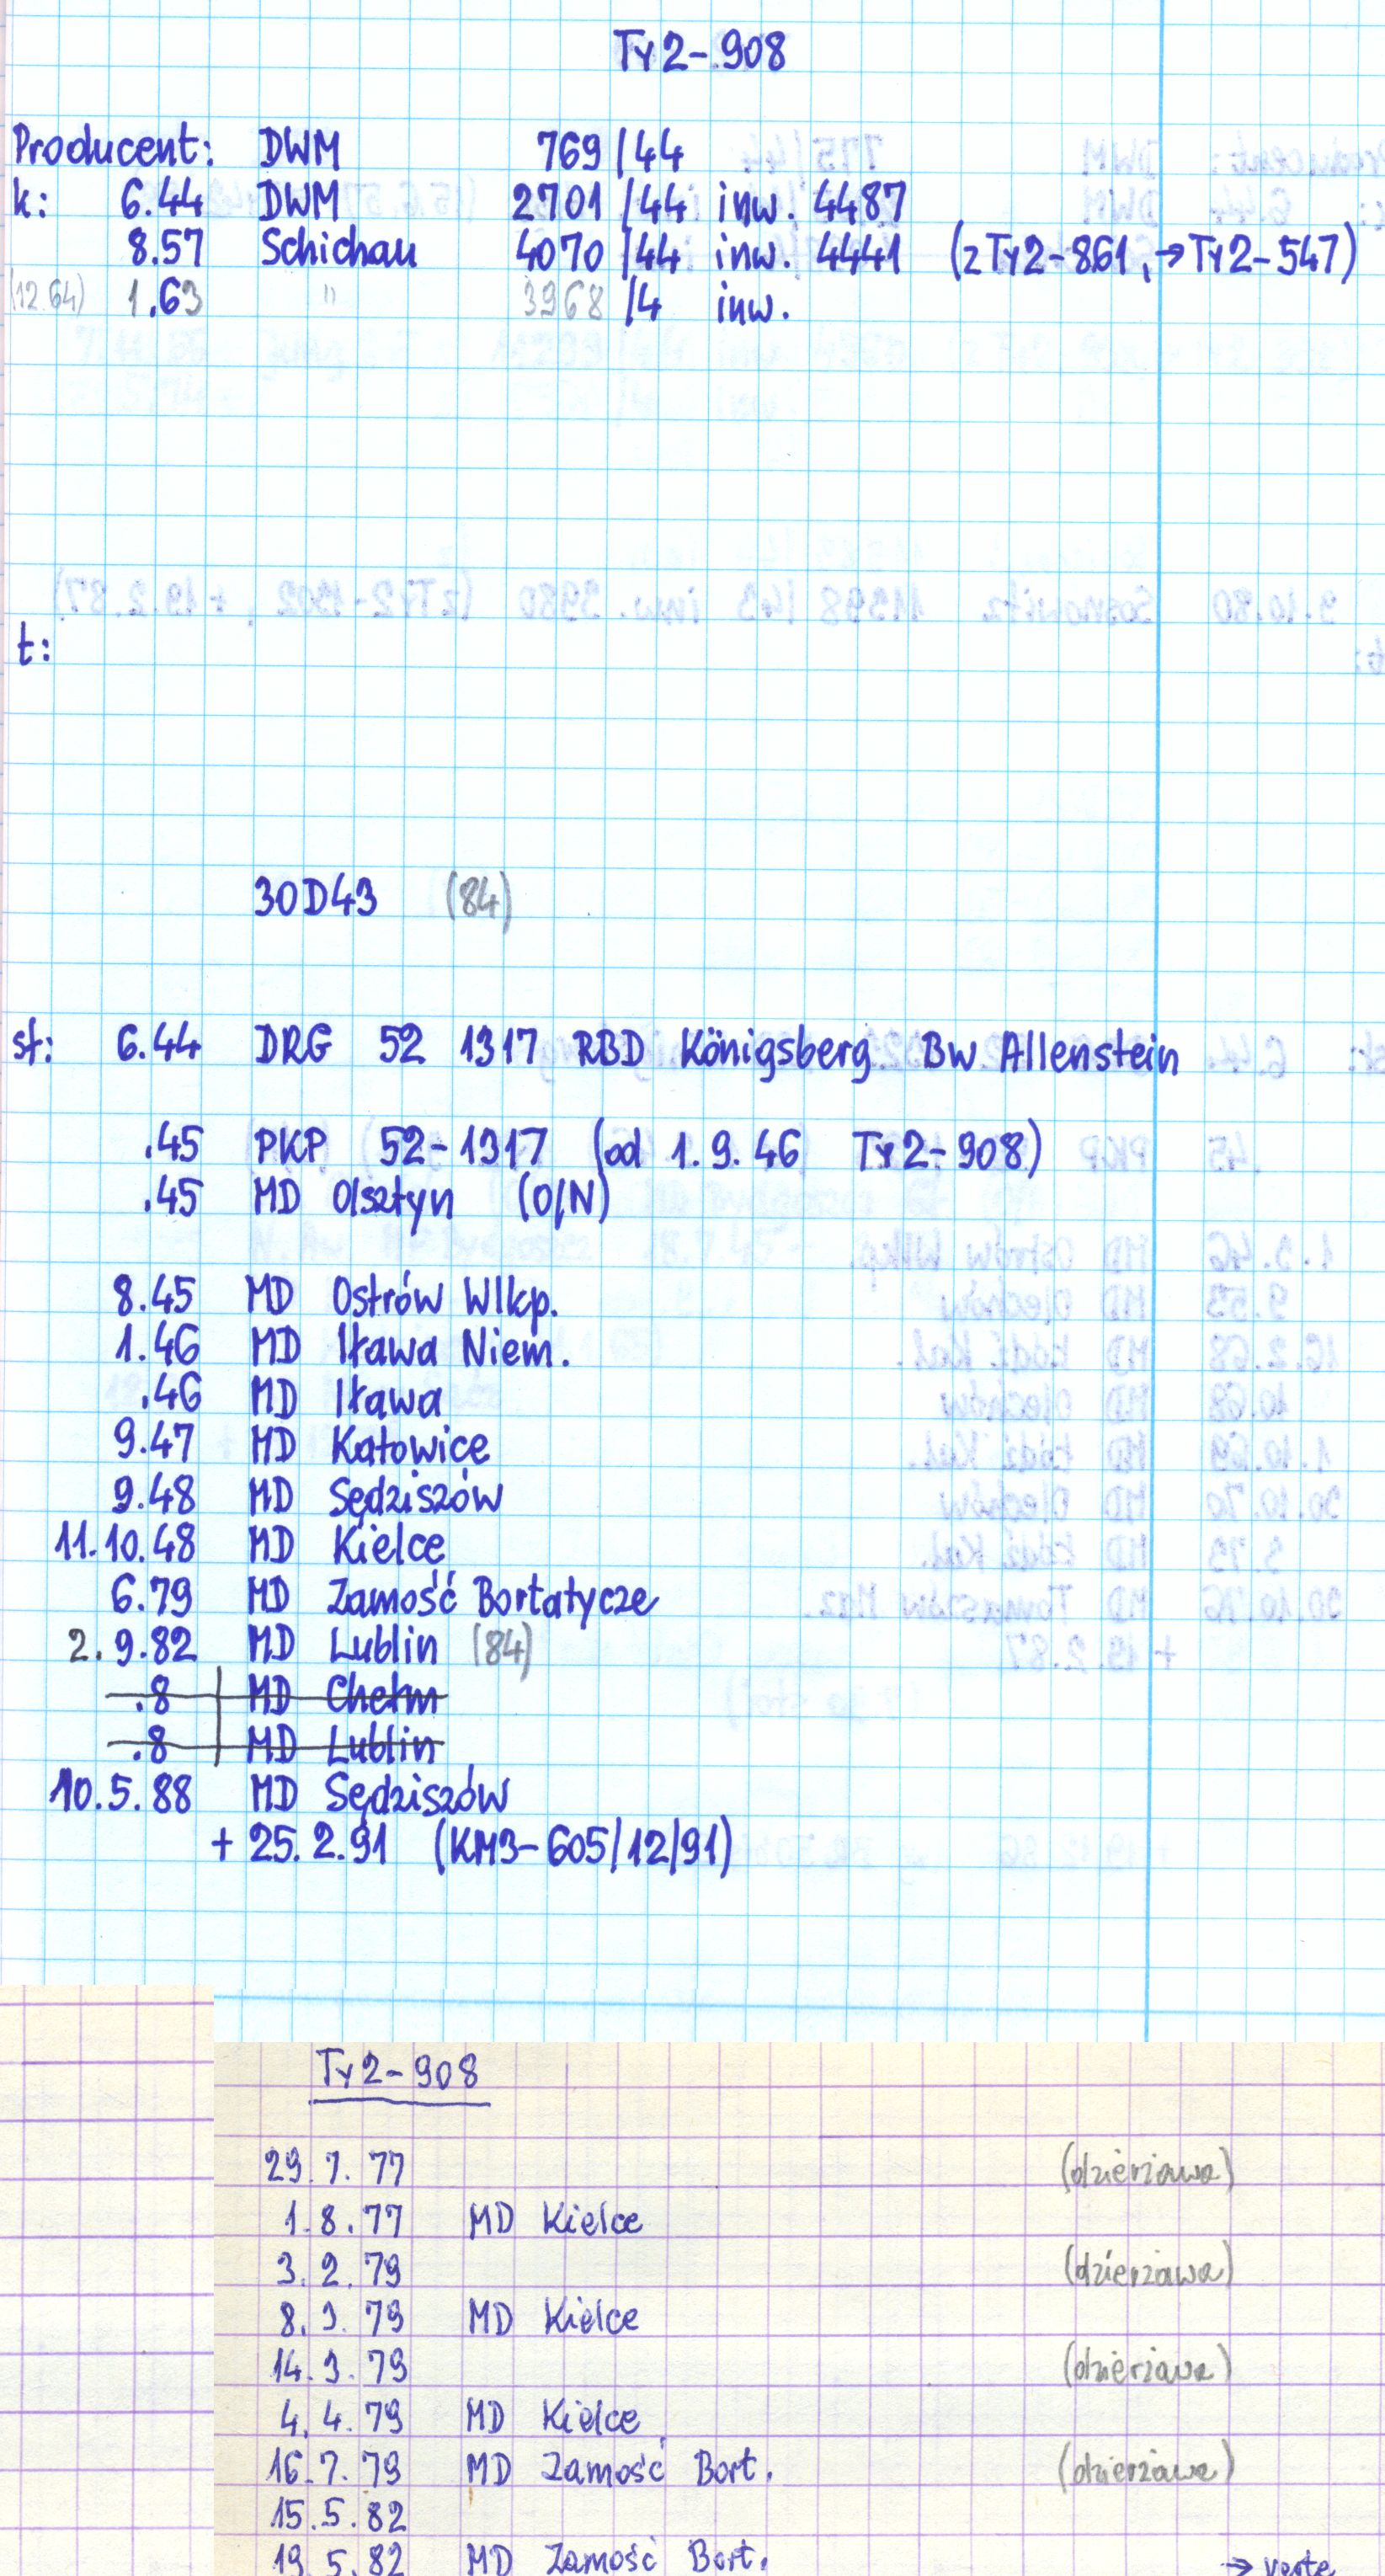 Ty2-908
Producent: DWM 769/44
k: 6.44 DWM 2701/44 inw. 4487
8.57 Schichau 4070/44 inw. 4441 (z Ty2-861, → Ty2-547)
(12.64) 1.63 " 3968/4 inw.
t:
30D43 (84)
st: 6.44 DRG 52 1317 RBD Königsberg Bw Allenstein
.45 PKP 52-1317 (od 1.9.46 Ty2-908)
.45 MD Olsztyn (O/N)
8.45 MD Ostrów Wlkp.
1.46 MD Iława Niem.
.46 MD Iława
9.47 MD Katowice
9.48 MD Sędziszów
11.10.48 MD Kielce
6.79 MD Zamość Bortatycze
2.9.82 MD Lublin (84)
.8 MD Chełm
.8 MD Lublin
10.5.88 MD Sędziszów
+ 25.2.91 (KM3-605/12/91)
Ty2-908
29.7.77 (dzierżawa)
1.8.77 MD Kielce
3.2.79 (dzierżawa)
8.3.79 MD Kielce
14.3.79 (dzierżawa)
4.4.79 MD Kielce
16.7.79 MD Zamość Bort. (dzierżawa)
15.5.82
19.5.82 MD Zamość Bort.
→ verte